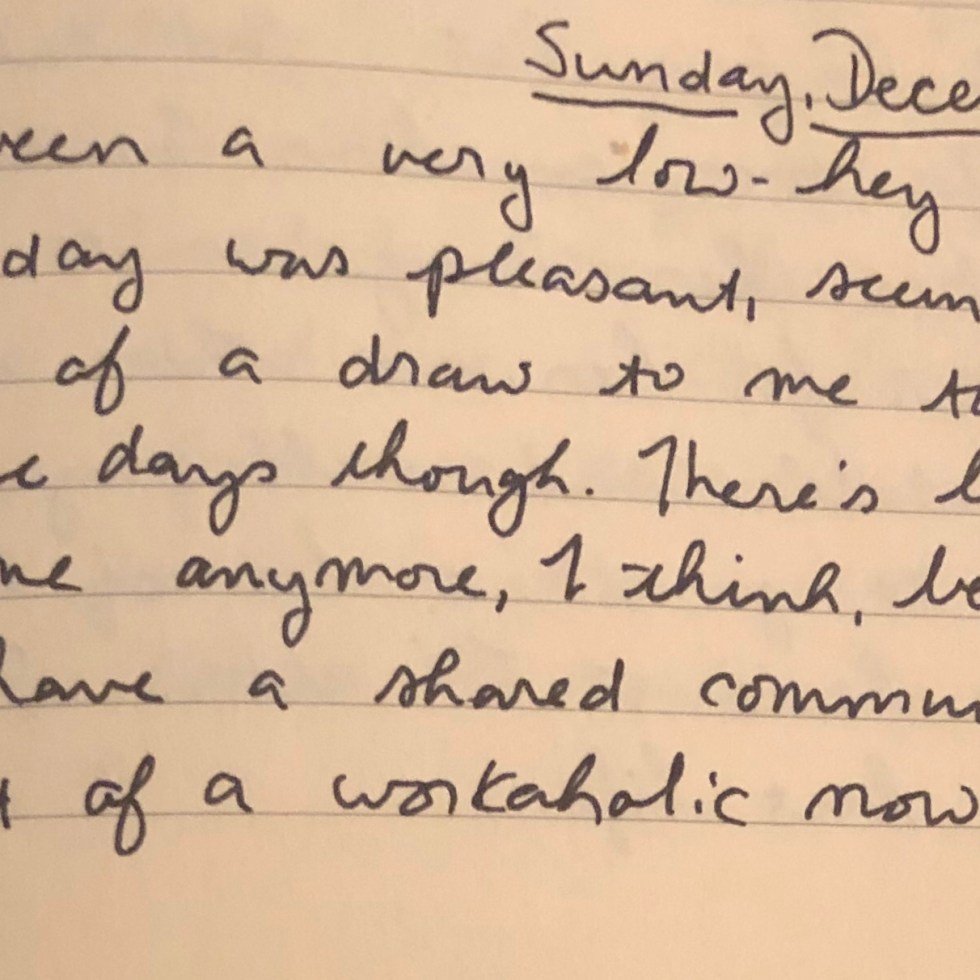 Sunday, Dece
een a very low-key
day was pleasant, seem
of a draw to me t
c days though. There's l
me anymore, I think, be
have a shared commun
t of a workaholic now